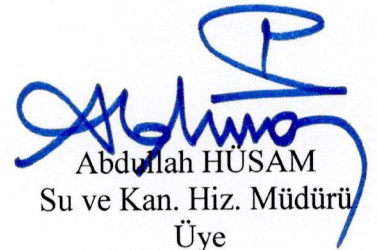 Abdullah HÜSAM
Su ve Kan. Hiz. Müdürü
Üye